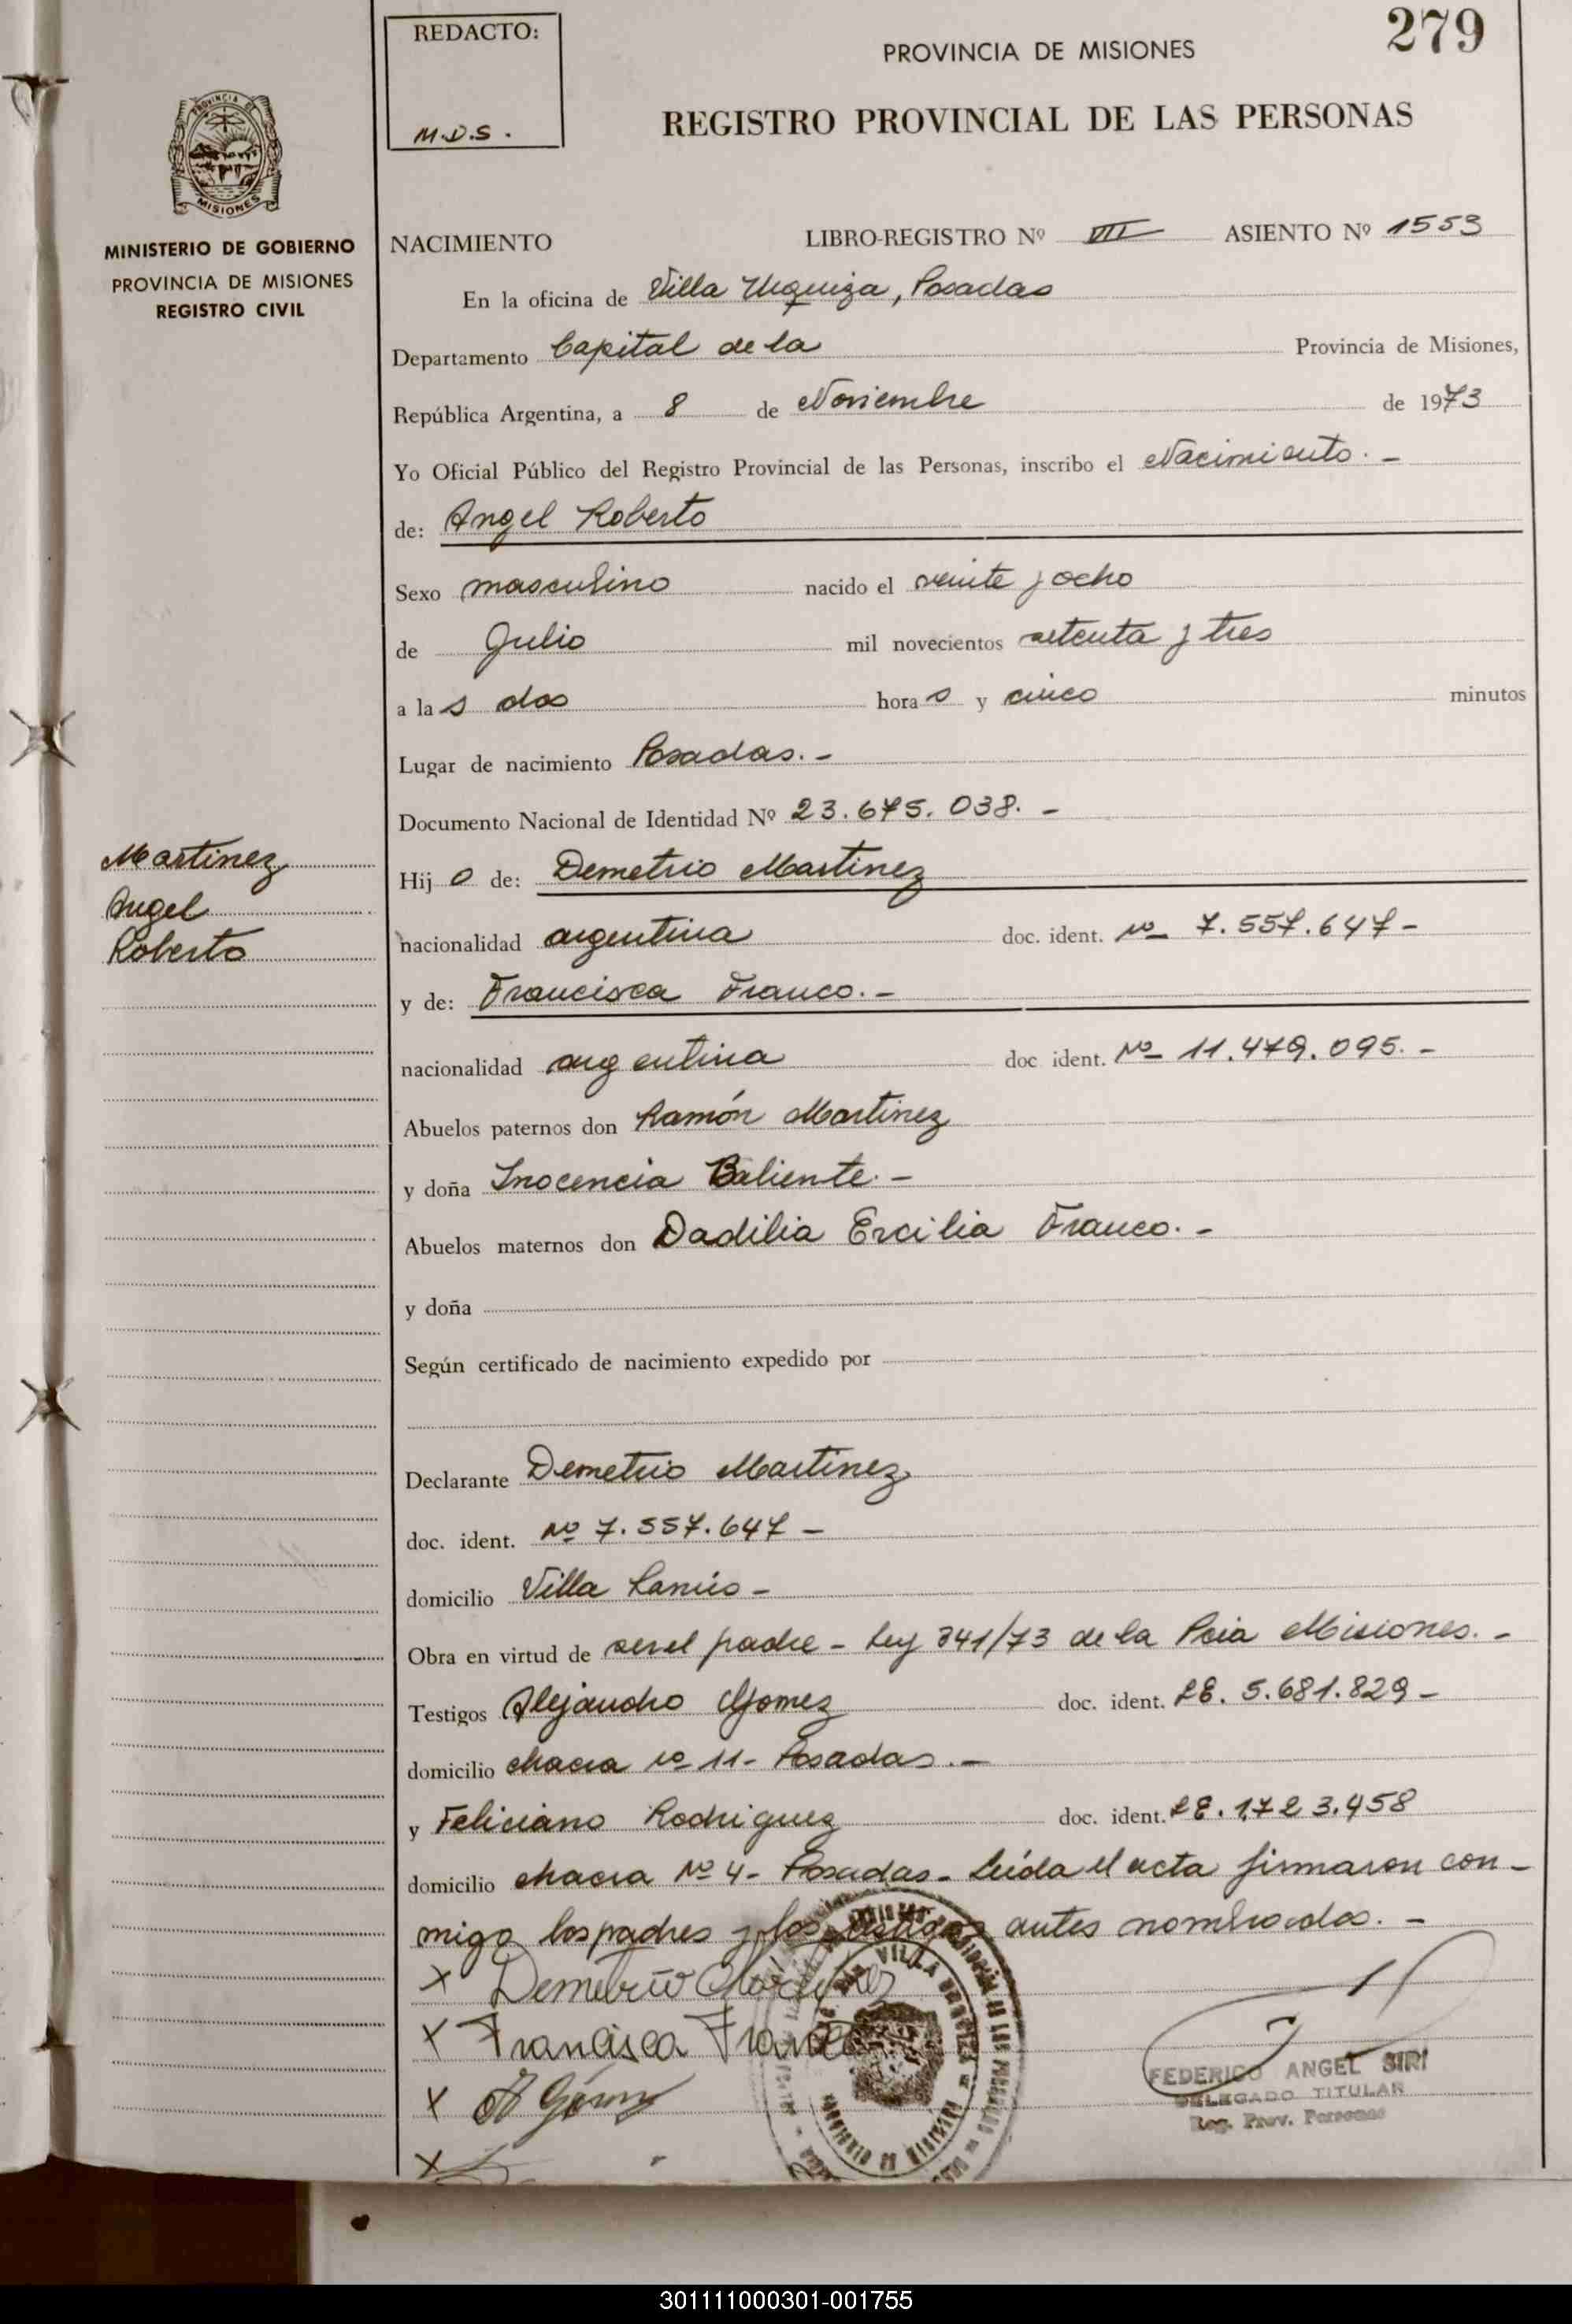 REDACTO:
M.D.S.
PROVINCIA DE MISIONES
279
REGISTRO PROVINCIAL DE LAS PERSONAS
PROVINCIA DE
MISIONES
MINISTERIO DE GOBIERNO
PROVINCIA DE MISIONES
REGISTRO CIVIL
NACIMIENTO LIBRO-REGISTRO Nº III ASIENTO Nº 1553
En la oficina de Villa Urquiza, Posadas
Departamento Capital de la Provincia de Misiones,
República Argentina, a 8 de Noviembre de 1973
Yo Oficial Público del Registro Provincial de las Personas, inscribo el Nacimiento. -
de: Angel Roberto
Sexo masculino nacido el veinte y ocho
de Julio mil novecientos setenta y tres
a las dos horas y cinco minutos
Lugar de nacimiento Posadas. -
Documento Nacional de Identidad Nº 23.675.038. -
Martinez
Angel
Roberto
Hijo de: Demetrio Martinez
nacionalidad argentina doc. ident. Nº 7.557.647 -
y de: Francisca Franco. -
nacionalidad argentina doc ident. Nº 11.479.095. -
Abuelos paternos don Ramón Martinez
y doña Inocencia Baliente. -
Abuelos maternos don Dadilia Ercilia Franco. -
y doña
Según certificado de nacimiento expedido por
Declarante Demetrio Martinez
doc. ident. Nº 7.557.647 -
domicilio Villa Lanús -
Obra en virtud de ser el padre - Ley 341/73 de la Pcia Misiones. -
Testigos Alejandro Gomez doc. ident. LE. 5.681.829 -
domicilio chacra nº 11 - Posadas. -
y Feliciano Rodriguez doc. ident. LE. 1.723.458
domicilio chacra Nº 4 - Posadas - Leída el acta firmaron con-
migo los padres y los testigos antes nombrados. -
x Demetrio Martinez
x Francisca Franco
x A Gómez
x
VILLA URQUIZA
FEDERICO ANGEL SIRI
DELEGADO TITULAR
Reg. Prov. Personas
301111000301-001755